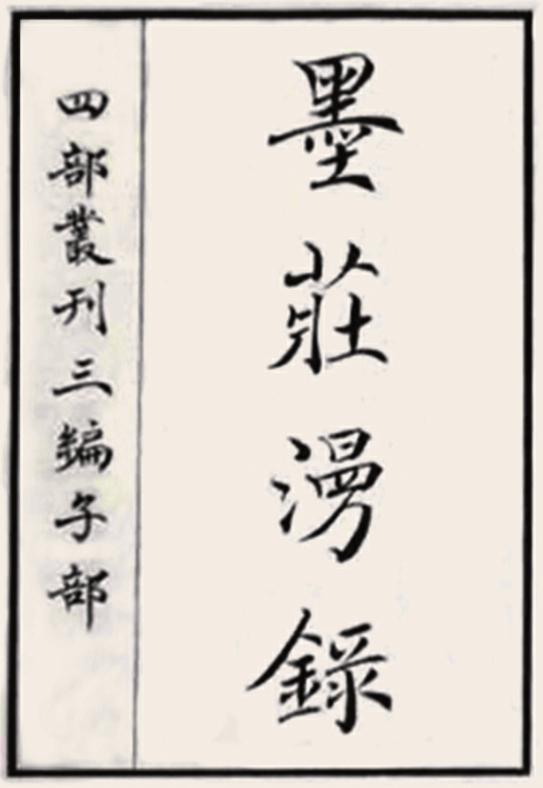 墨莊漫錄
四部叢刊三編子部